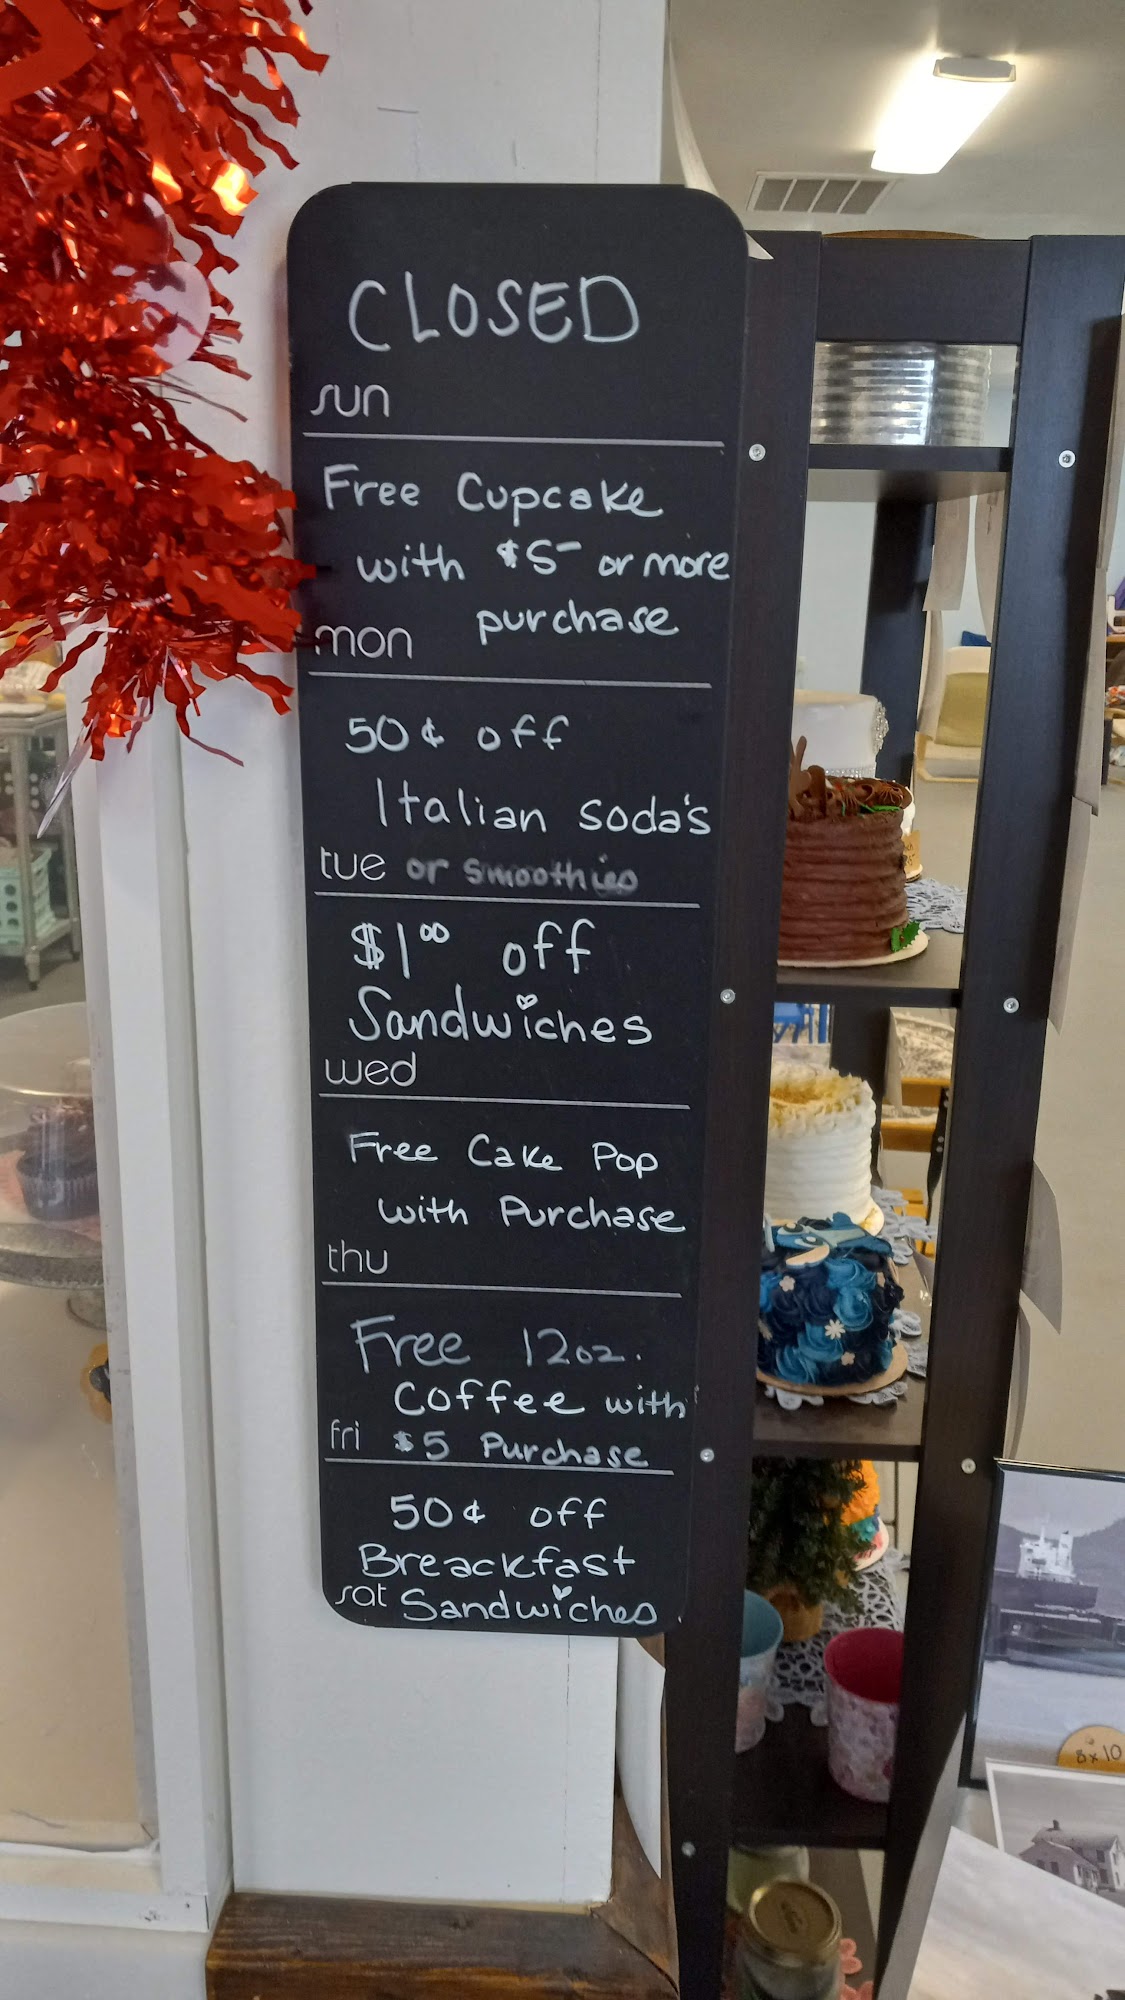 CLOSED
sun
Free Cupcake
with $5- or more
purchase
mon
50¢ off
Italian Soda's
tue or smoothies
$1.00 off
Sandwiches
wed
Free Cake Pop
with Purchase
thu
Free 12oz.
Coffee with
fri $5 Purchase
50¢ off
Breackfast
sat Sandwiches
8x10